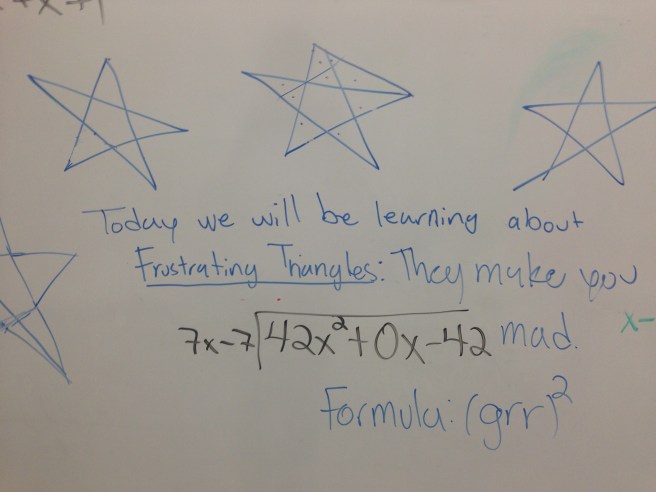 +x+1
Today we will be learning about
Frustrating Triangles: They make you
7x-7 42x²+0x-42 mad. x-
Formula: (grr)²